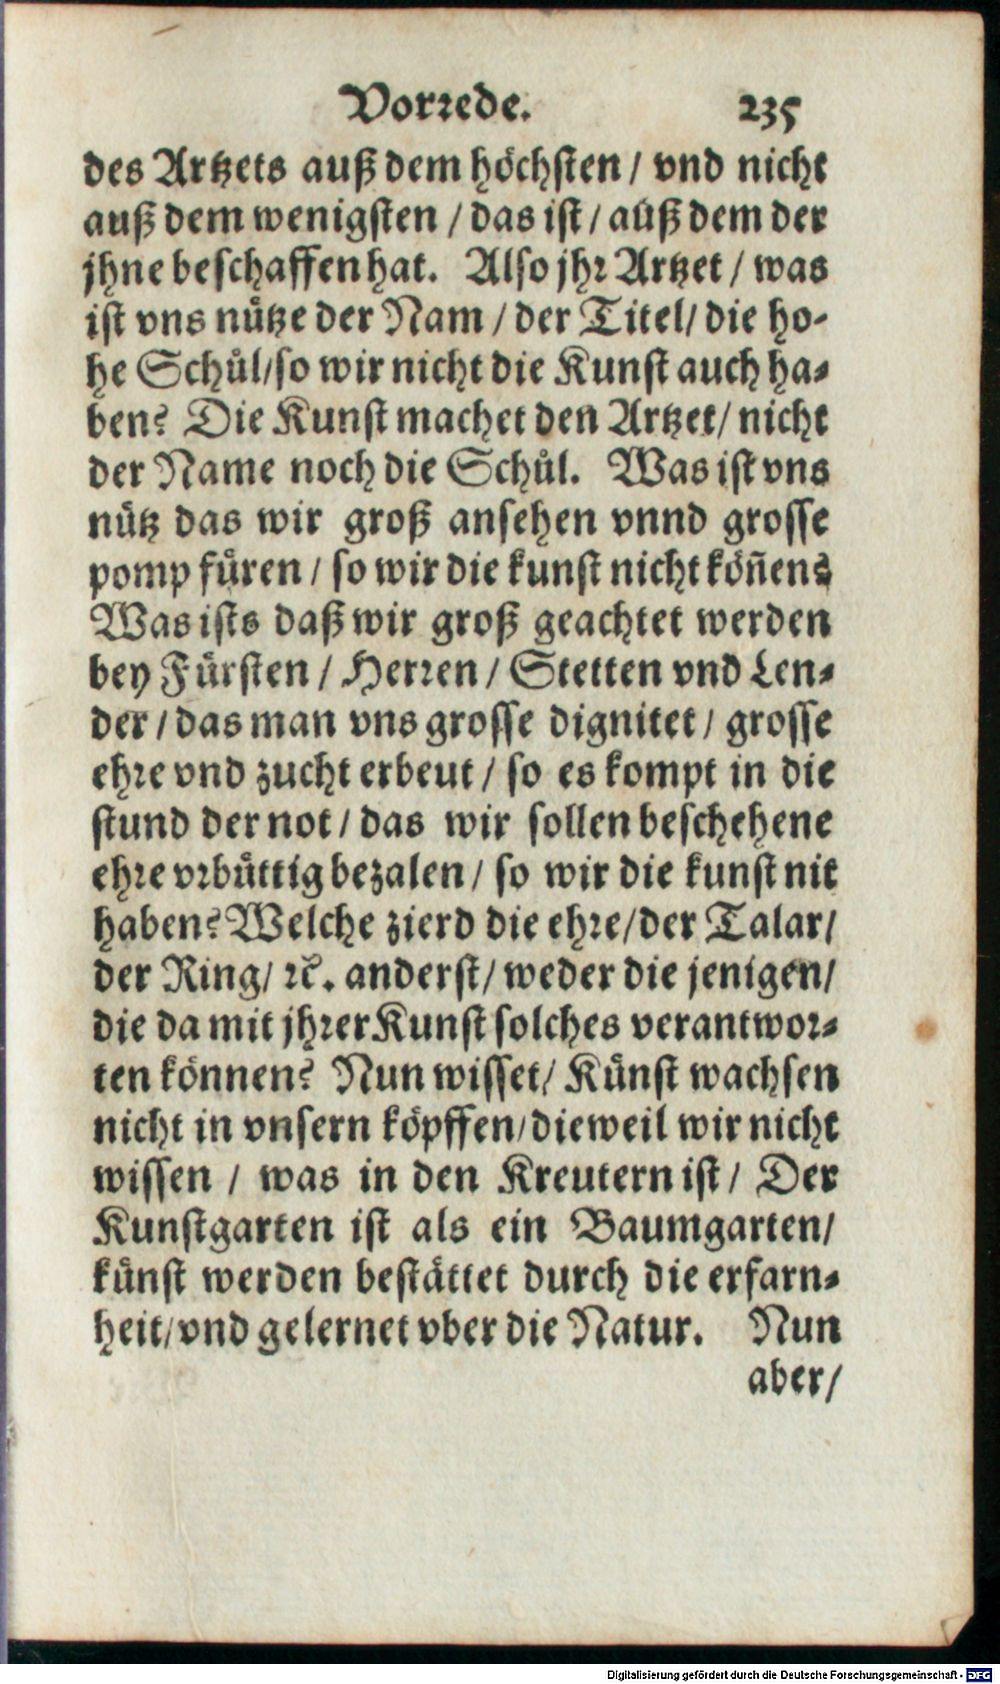 Vorrede. 235
des Artzets auß dem höchsten / vnd nicht
auß dem wenigsten / das ist / auß dem der
jhne beschaffen hat. Also jhr Artzet / was
ist vns nütze der Nam / der Titel / die ho-
he Schůl / so wir nicht die Kunst auch ha-
ben? Die Kunst machet den Artzet / nicht
der Name noch die Schůl. Was ist vns
nütz das wir groß ansehen vnnd grosse
pomp füren / so wir die kunst nicht köñen?
Was ists daß wir groß geachtet werden
bey Fürsten / Herren / Stetten vnd Len-
der / das man vns grosse dignitet / grosse
ehre vnd zucht erbeut / so es kompt in die
stund der not / das wir sollen beschehene
ehre vrbüttig bezalen / so wir die kunst nit
haben? Welche zierd die ehre / der Talar /
der Ring / ꝛc. anderst / weder die jenigen /
die da mit jhrer Kunst solches verantwor-
ten können? Nun wisset / Künst wachsen
nicht in vnsern köpffen / dieweil wir nicht
wissen / was in den Kreutern ist / Der
Kunstgarten ist als ein Baumgarten /
künst werden bestättet durch die erfarn-
heit / vnd gelernet vber die Natur. Nun
aber /
Digitalisierung gefördert durch die Deutsche Forschungsgemeinschaft - DFG